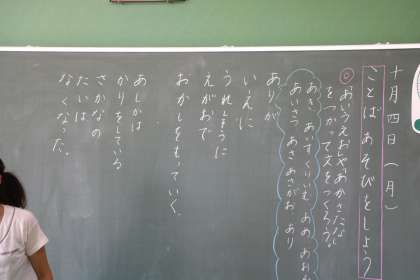 十月四日（月）
ことばあそびをしよう
◎あいうえおしやあかさたな
をつかって文をつくろう。
あき あり あめ
あいさつ あさ あさがお あり
ありが
いえに
うれしそうに
えがおで
おかしをもっていく。
あしかは
かりをしている
さかなの
たいは
なくなった。